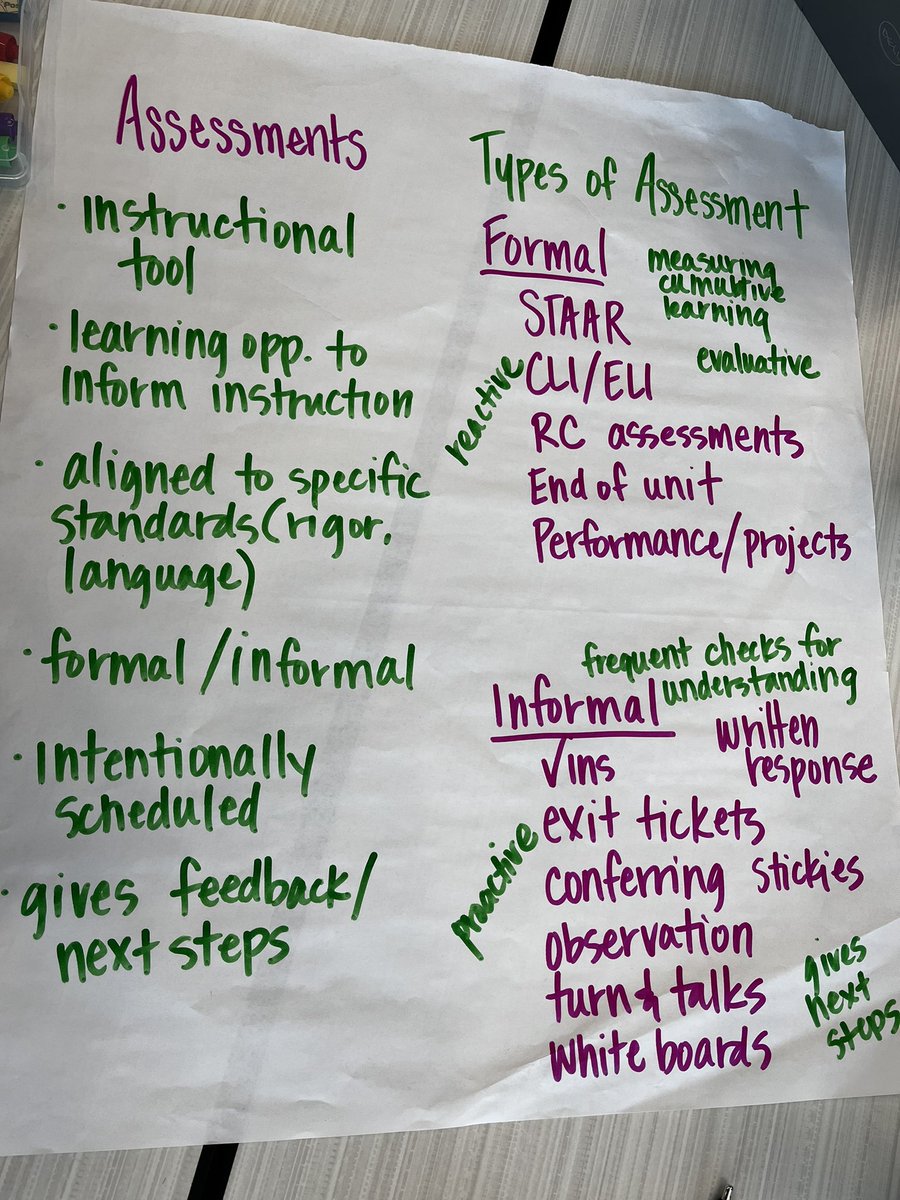 Assessments
· Instructional
tool
· learning opp. to
Inform instruction
· aligned to specific
standards (rigor,
language)
· formal / informal
· Intentionally
scheduled
· gives feedback/
next steps
Types of Assessment
Formal
measuring
cumulative
learning
evaluative
reactive
STAAR
CLI/ELI
RC assessments
End of unit
Performance/projects
frequent checks for
understanding
Informal
written
response
proactive
√ins
exit tickets
conferring stickies
observation
turn & talks
white boards
gives
next
steps